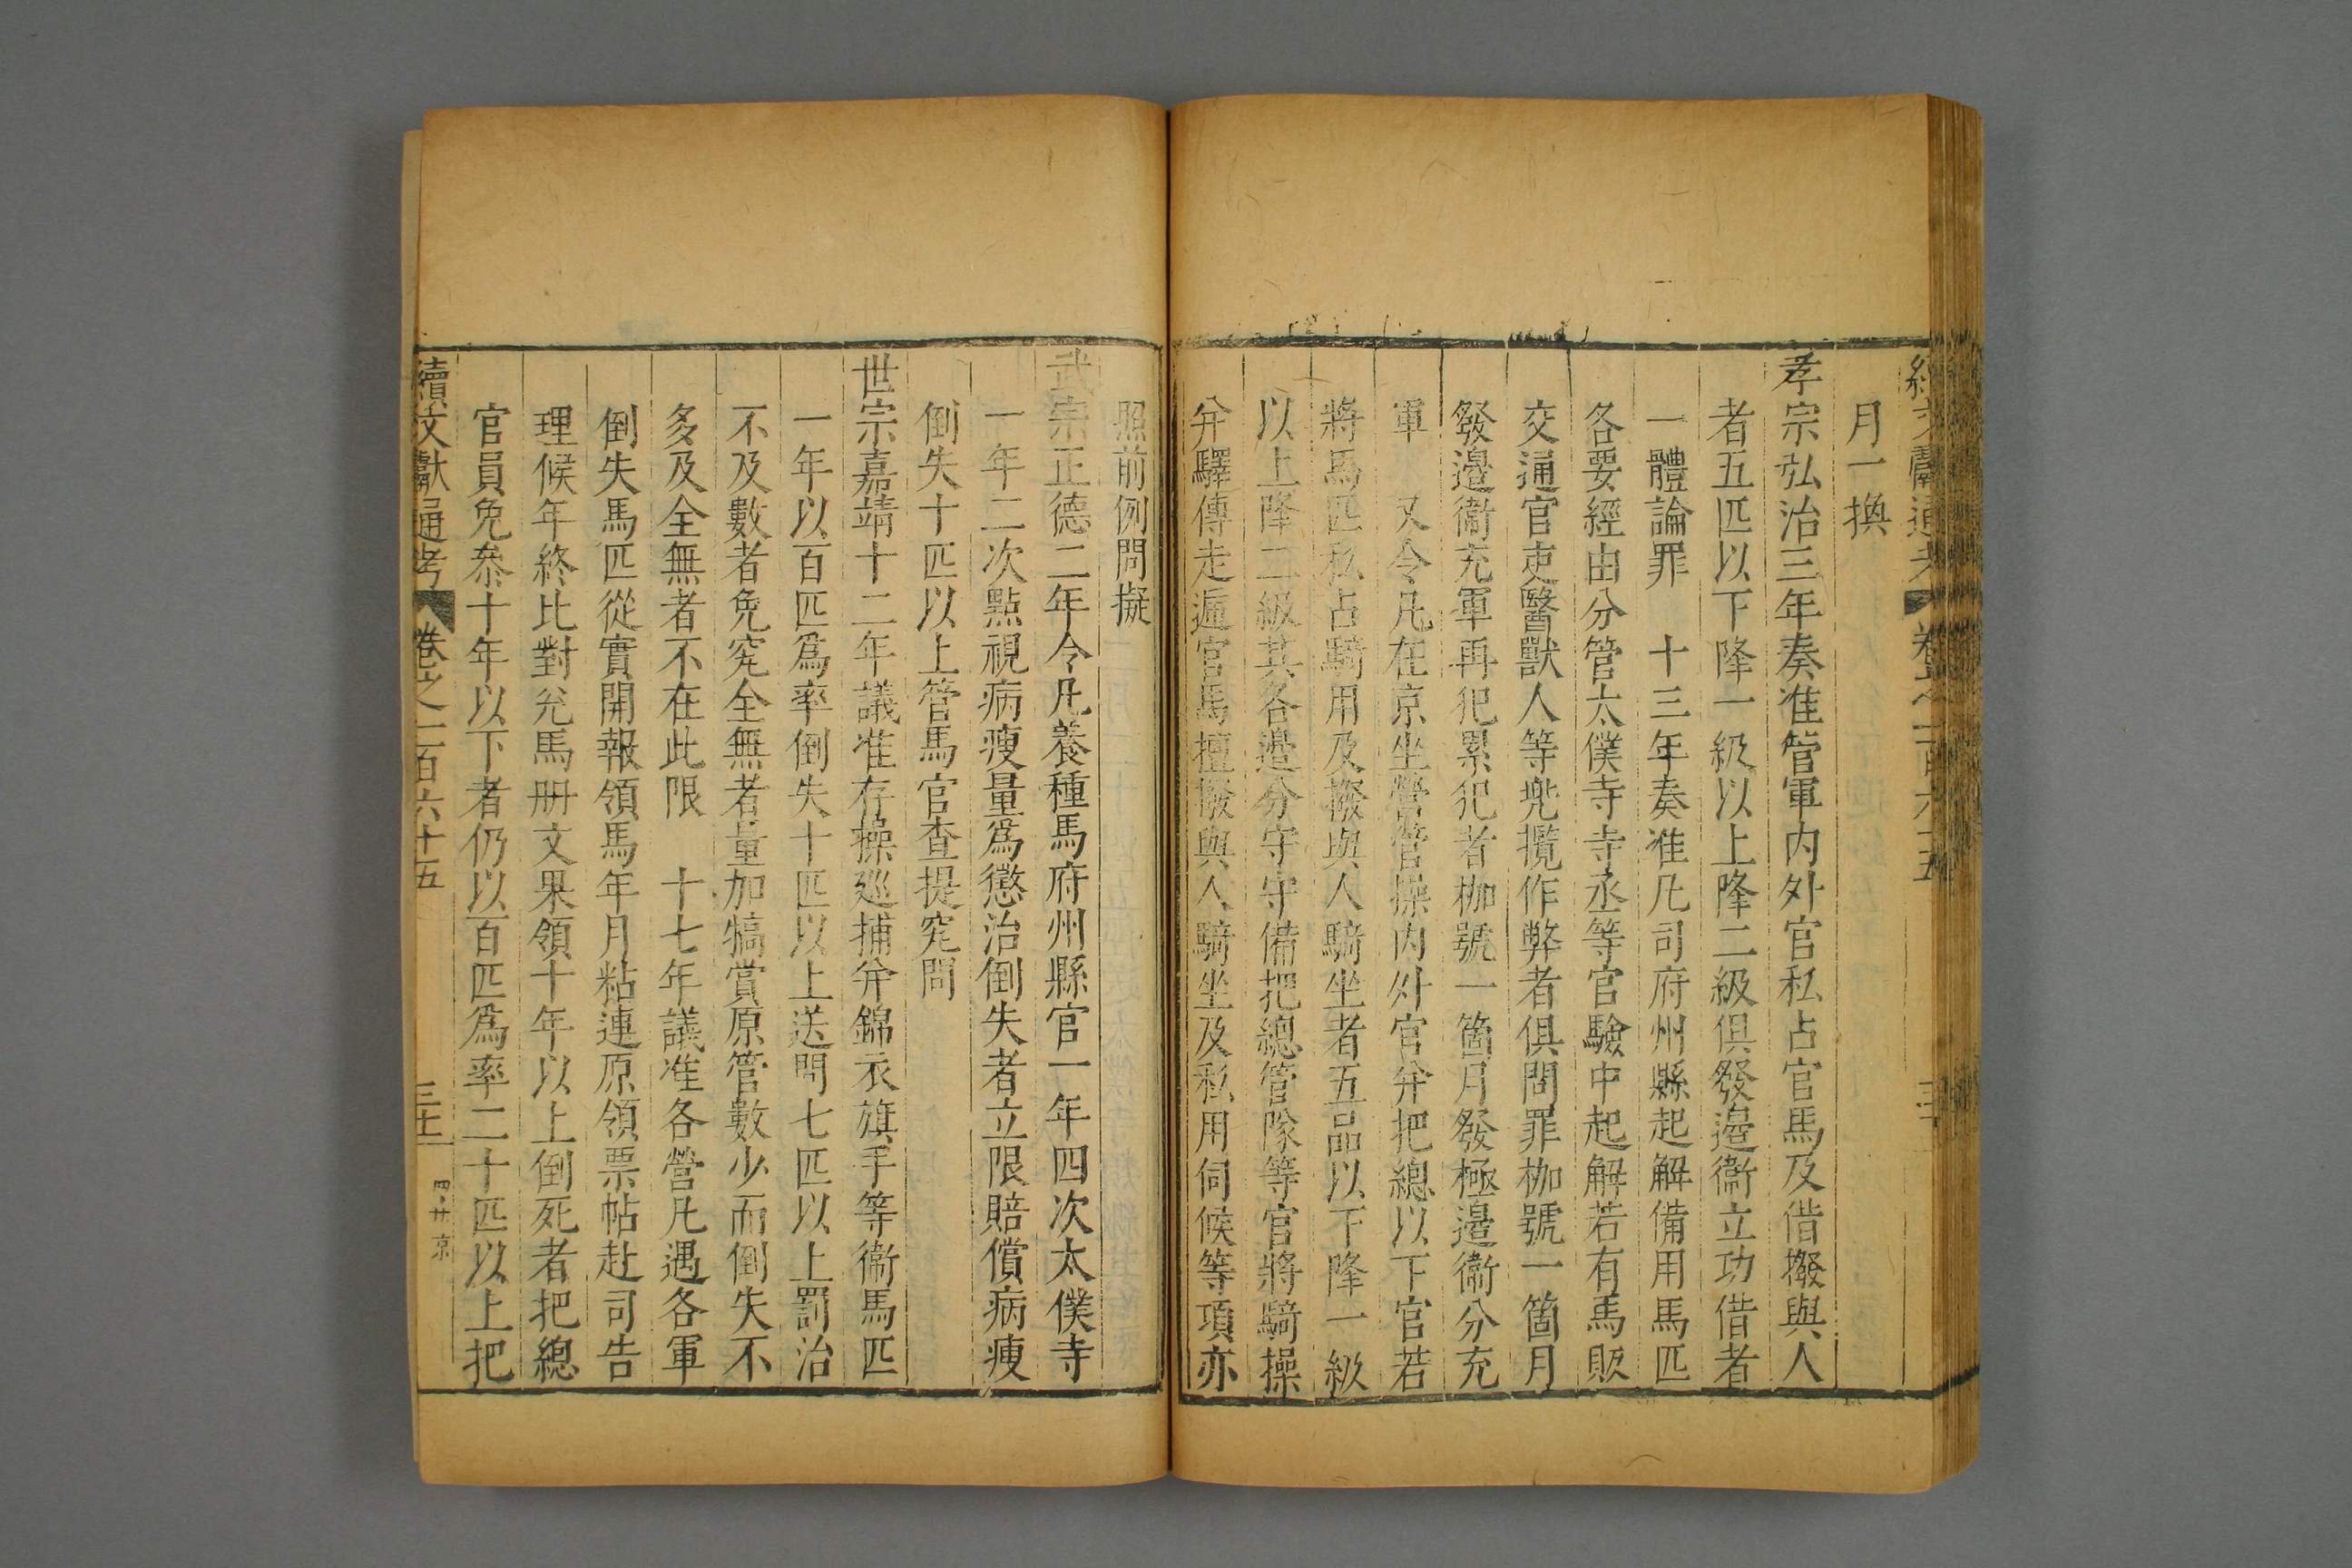 續文獻通考 卷之一百六十五
月一換
孝宗弘治三年奏准管軍内外官私占官馬及借撥與人
者五匹以下降一級以上降二級俱發邊衞立功借者
一體論罪 十三年奏准凡司府州縣起解備用馬匹
各要經由分管太僕寺寺丞等官驗中起解若有馬販
交通官吏醫獸人等兠攬作弊者俱問罪枷號一箇月
發邊衞充軍再犯累犯者枷號一箇月發極邊衞分充
軍 又令凡在京坐營管操内外官并把總以下官若
將馬匹私占騎用及撥與人騎坐者五品以下降一級
以上降二級其各邊分守守備把總管隊等官將騎操
并驛傳走逓官馬擅撥與人騎坐及私用伺候等項亦
照前例問擬
武宗正德二年令凡養種馬府州縣官一年四次太僕寺
一年二次點視病瘦量爲懲治倒失者立限賠償病瘦
倒失十匹以上管馬官查提究問
世宗嘉靖十二年議准存操廵捕并錦衣旗手等衞馬匹
一年以百匹爲率倒失十匹以上送問七匹以上罰治
不及數者免究全無者量加犒賞原管數少而倒失不
多及全無者不在此限 十七年議准各營凡遇各軍
倒失馬匹從實開報領馬年月粘連原領票帖赴司告
理候年終比對兊馬冊文果領十年以上倒死者把總
官員免叅十年以下者仍以百匹爲率二十匹以上把
續文獻通考 卷之一百六十五 三十 四廿京